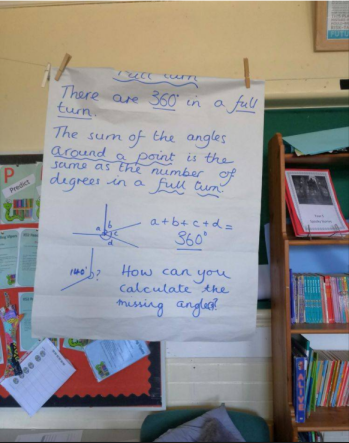 Full turn
There are 360° in a full
turn.
The sum of the angles
around a point is the
same as the number of
degrees in a full turn
a b c d
a + b + c + d =
360°
?
How can you
calculate the
missing angles?
P
Predict